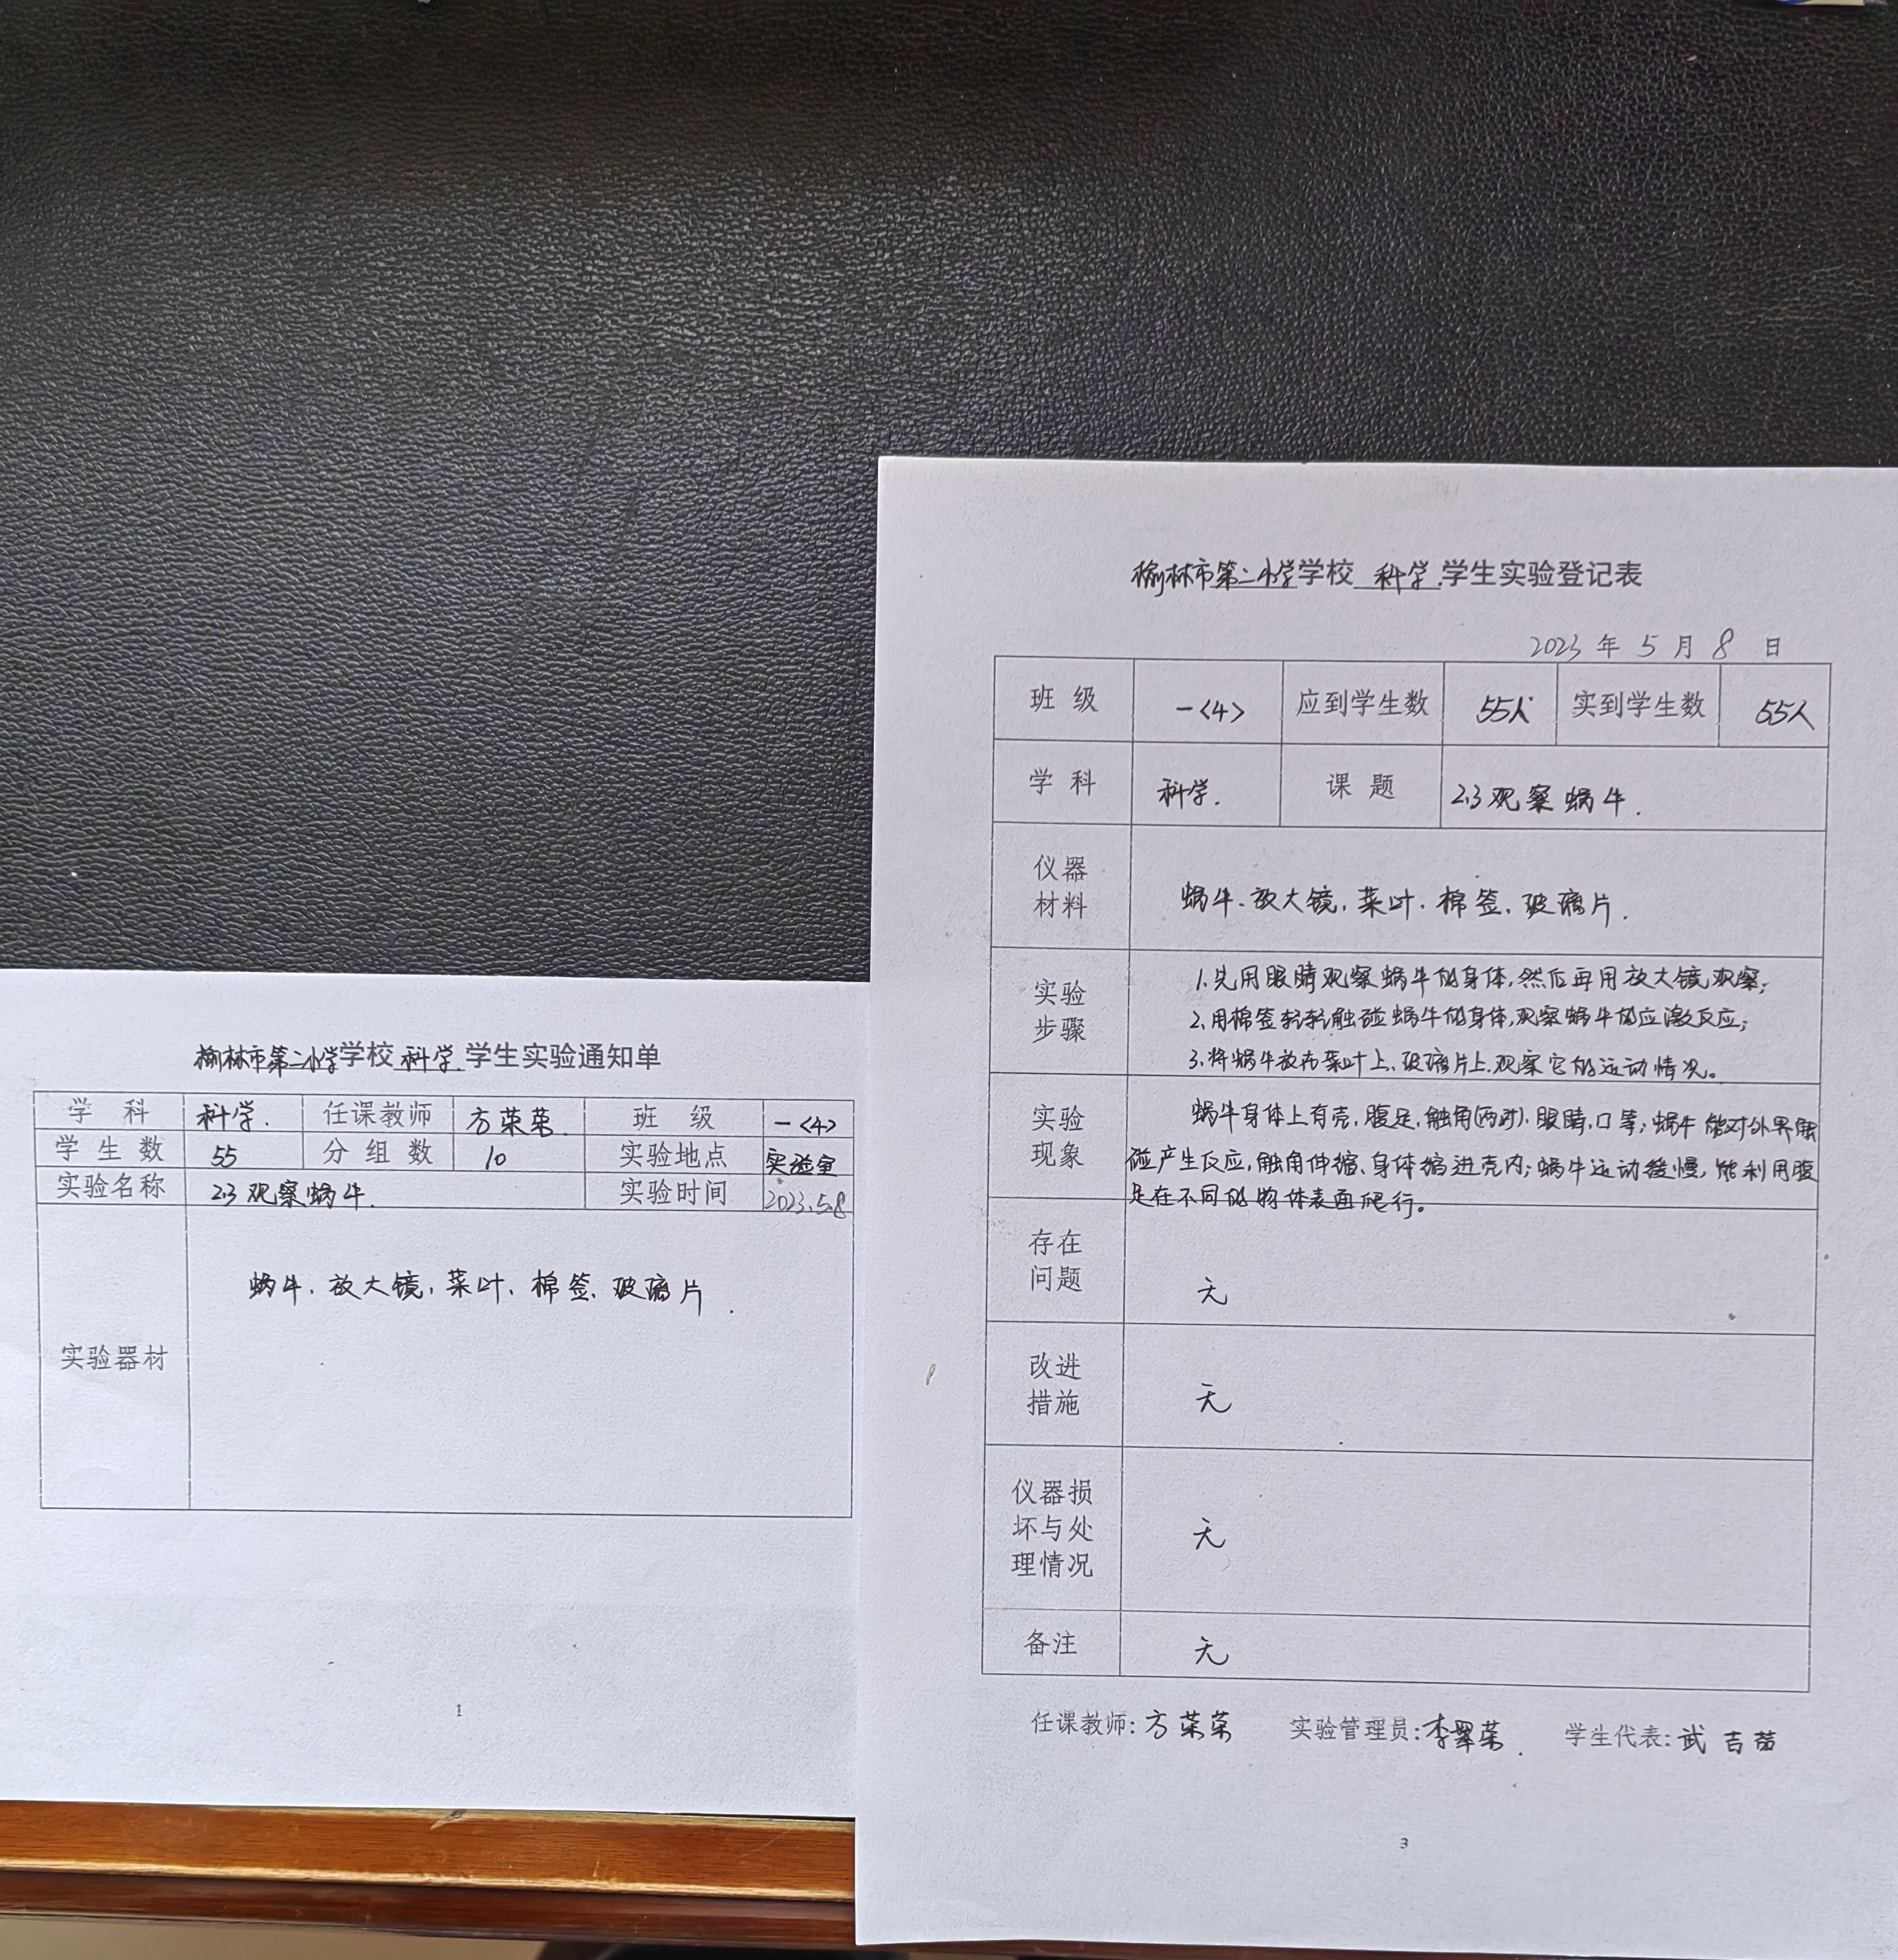 榆林市第二小学学校 科学 学生实验通知单
学 科 科学. 任课教师 方荣荣 班 级 一<4>
学生数 55 分组数 10 实验地点 实验室
实验名称 2.3 观察蜗牛. 实验时间 2023.5.8
实验器材 蜗牛、放大镜、菜叶、棉签、玻璃片.
1
榆林市第二小学学校 科学 学生实验登记表
2023 年 5 月 8 日
班 级 一<4> 应到学生数 55人 实到学生数 55人
学 科 科学. 课 题 2.3 观察蜗牛.
仪器
材料
蜗牛、放大镜、菜叶、棉签、玻璃片.
实验
步骤
1.先用眼睛观察蜗牛的身体,然后再用放大镜观察;
2.用棉签轻轻触碰蜗牛的身体,观察蜗牛的应激反应;
3.将蜗牛放在菜叶上、玻璃片上,观察它的运动情况。
实验
现象
蜗牛身体上有壳,腹足,触角(两对),眼睛,口等;蜗牛能对外界触
碰产生反应,触角伸缩、身体缩进壳内;蜗牛运动缓慢,能利用腹
足在不同的物体表面爬行。
存在
问题
无
改进
措施
无
仪器损
坏与处
理情况
无
备注 无
任课教师:方荣荣 实验管理员:李翠荣. 学生代表:武吉
3